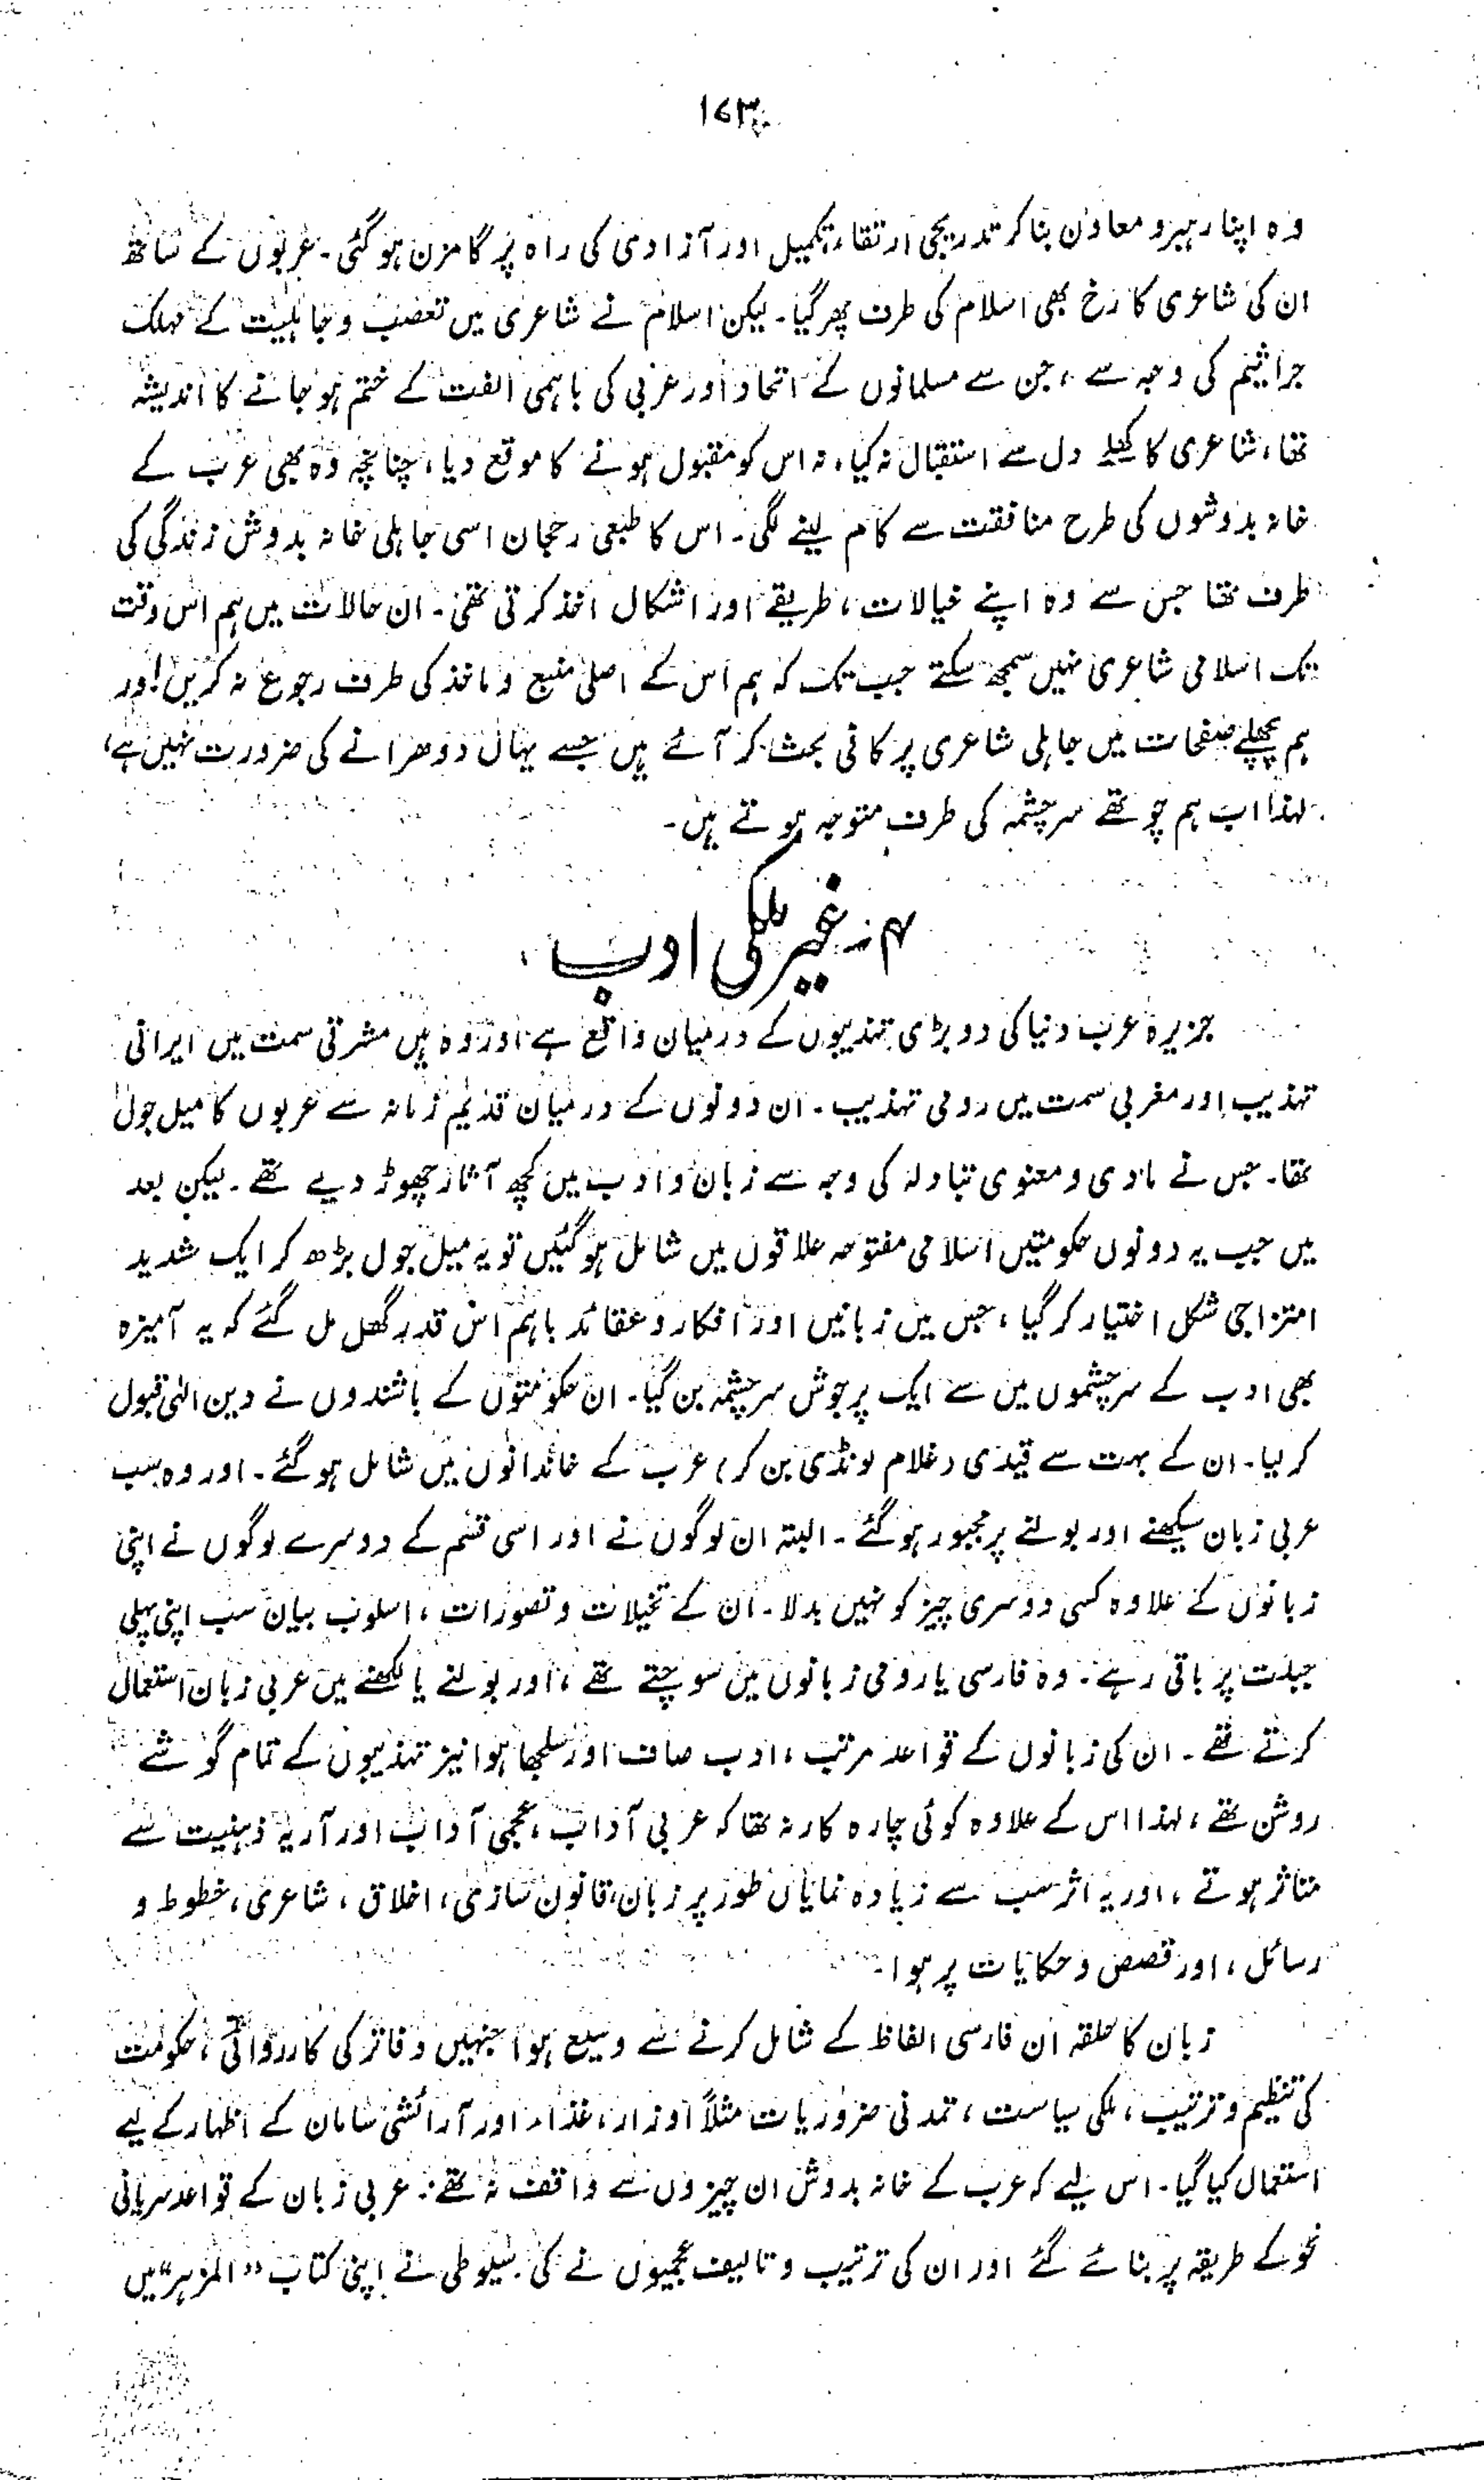 ۱۷۳
وہ اپنا رہبر و معاون بنا کر تدریجی ارتقاء، تکمیل اور آزادی کی راہ پر گامزن ہو گئی۔ عربوں کے ساتھ
ان کی شاعری کا رخ بھی اسلام کی طرف پھر گیا۔ لیکن اسلام نے شاعری میں تعصب و جاہلیت کے مہلک
جراثیم کی وجہ سے، جن سے مسلمانوں کے اتحاد اور عربی کی باہمی الفت کے ختم ہو جانے کا اندیشہ
تھا، شاعری کا کھلے دل سے استقبال نہ کیا، نہ اس کو مقبول ہونے کا موقع دیا، چنانچہ وہ بھی عرب کے
خانہ بدوشوں کی طرح منافقت سے کام لینے لگی۔ اس کا طبعی رحجان اسی جاہلی خانہ بدوش زندگی کی
طرف تھا جس سے وہ اپنے خیالات، طریقے اور اشکال اخذ کرتی تھی۔ ان حالات میں ہم اس وقت
تک اسلامی شاعری نہیں سمجھ سکتے جب تک کہ ہم اس کے اصلی منبع و ماخذ کی طرف رجوع نہ کریں! اور
ہم پچھلے صفحات میں جاہلی شاعری پر کافی بحث کر آئے ہیں جسے یہاں دوھرانے کی ضرورت نہیں ہے،
لہذا اب ہم چوتھے سرچشمہ کی طرف متوجہ ہوتے ہیں۔
۴۔ غیر ملکی ادب
جزیرہ عرب دنیا کی دو بڑی تہذیبوں کے درمیان واقع ہے اور وہ ہیں مشرقی سمت میں ایرانی
تہذیب اور مغربی سمت میں رومی تہذیب۔ ان دونوں کے درمیان قدیم زمانہ سے عربوں کا میل جول
تھا۔ جس نے مادی و معنوی تبادلہ کی وجہ سے زبان و ادب میں کچھ آثار چھوڑ دیے تھے۔ لیکن بعد
میں جب یہ دونوں حکومتیں اسلامی مفتوحہ علاقوں میں شامل ہو گئیں تو یہ میل جول بڑھ کر ایک شدید
امتزاجی شکل اختیار کر گیا، جس میں زبانیں اور افکار و عقائد باہم اس قدر گھل مل گئے کہ یہ آمیزہ
بھی ادب کے سرچشموں میں سے ایک پرجوش سرچشمہ بن گیا۔ ان حکومتوں کے باشندوں نے دین الٰہی قبول
کر لیا۔ ان کے بہت سے قیدی (غلام لونڈی بن کر) عرب کے خاندانوں میں شامل ہو گئے۔ اور وہ سب
عربی زبان سیکھنے اور بولنے پر مجبور ہو گئے۔ البتہ ان لوگوں نے اور اسی قسم کے دوسرے لوگوں نے اپنی
زبانوں کے علاوہ کسی دوسری چیز کو نہیں بدلا۔ ان کے تخیلات و تصورات، اسلوب بیان سب اپنی پہلی
جبلت پر باقی رہے۔ وہ فارسی یا رومی زبانوں میں سوچتے تھے، اور بولنے یا لکھنے میں عربی زبان استعمال
کرتے تھے۔ ان کی زبانوں کے قواعد مرتب، ادب صاف اور سلجھا ہوا نیز تہذیبوں کے تمام گوشے
روشن تھے، لہذا اس کے علاوہ کوئی چارہ کار نہ تھا کہ عربی آداب، عجمی آداب اور آریہ ذہنیت سے
متاثر ہوتے، اور یہ اثر سب سے زیادہ نمایاں طور پر زبان، قانون سازی، اخلاق، شاعری، خطوط و
رسائل، اور قصص و حکایات پر ہوا۔
زبان کا حلقہ ان فارسی الفاظ کے شامل کرنے سے وسیع ہوا جنہیں دفاتر کی کارروائی، حکومت
کی تنظیم و ترتیب، ملکی سیاست، تمدنی ضروریات مثلاً اوزار، غذاء اور آرائشی سامان کے اظہار کے لیے
استعمال کیا گیا۔ اس لیے کہ عرب کے خانہ بدوش ان چیزوں سے واقف نہ تھے۔ عربی زبان کے قواعد سریانی
نحو کے طریقہ پر بنائے گئے اور ان کی ترتیب و تالیف عجمیوں نے کی۔ سیوطی نے اپنی کتاب "المزہر" میں